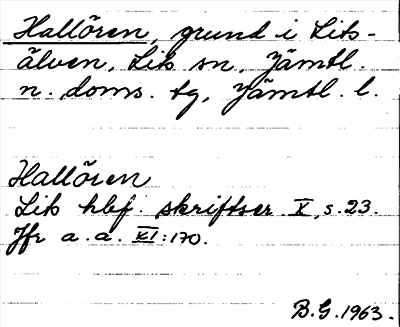 Hallören, grund i Lits-
älven, Lits sn, Jämtl.
n. doms. tg, Jämtl. l.
Hallören
Lits hbf. skriftser. X, s. 23.
Jfr a. a. XI: 170.
B.G. 1963.